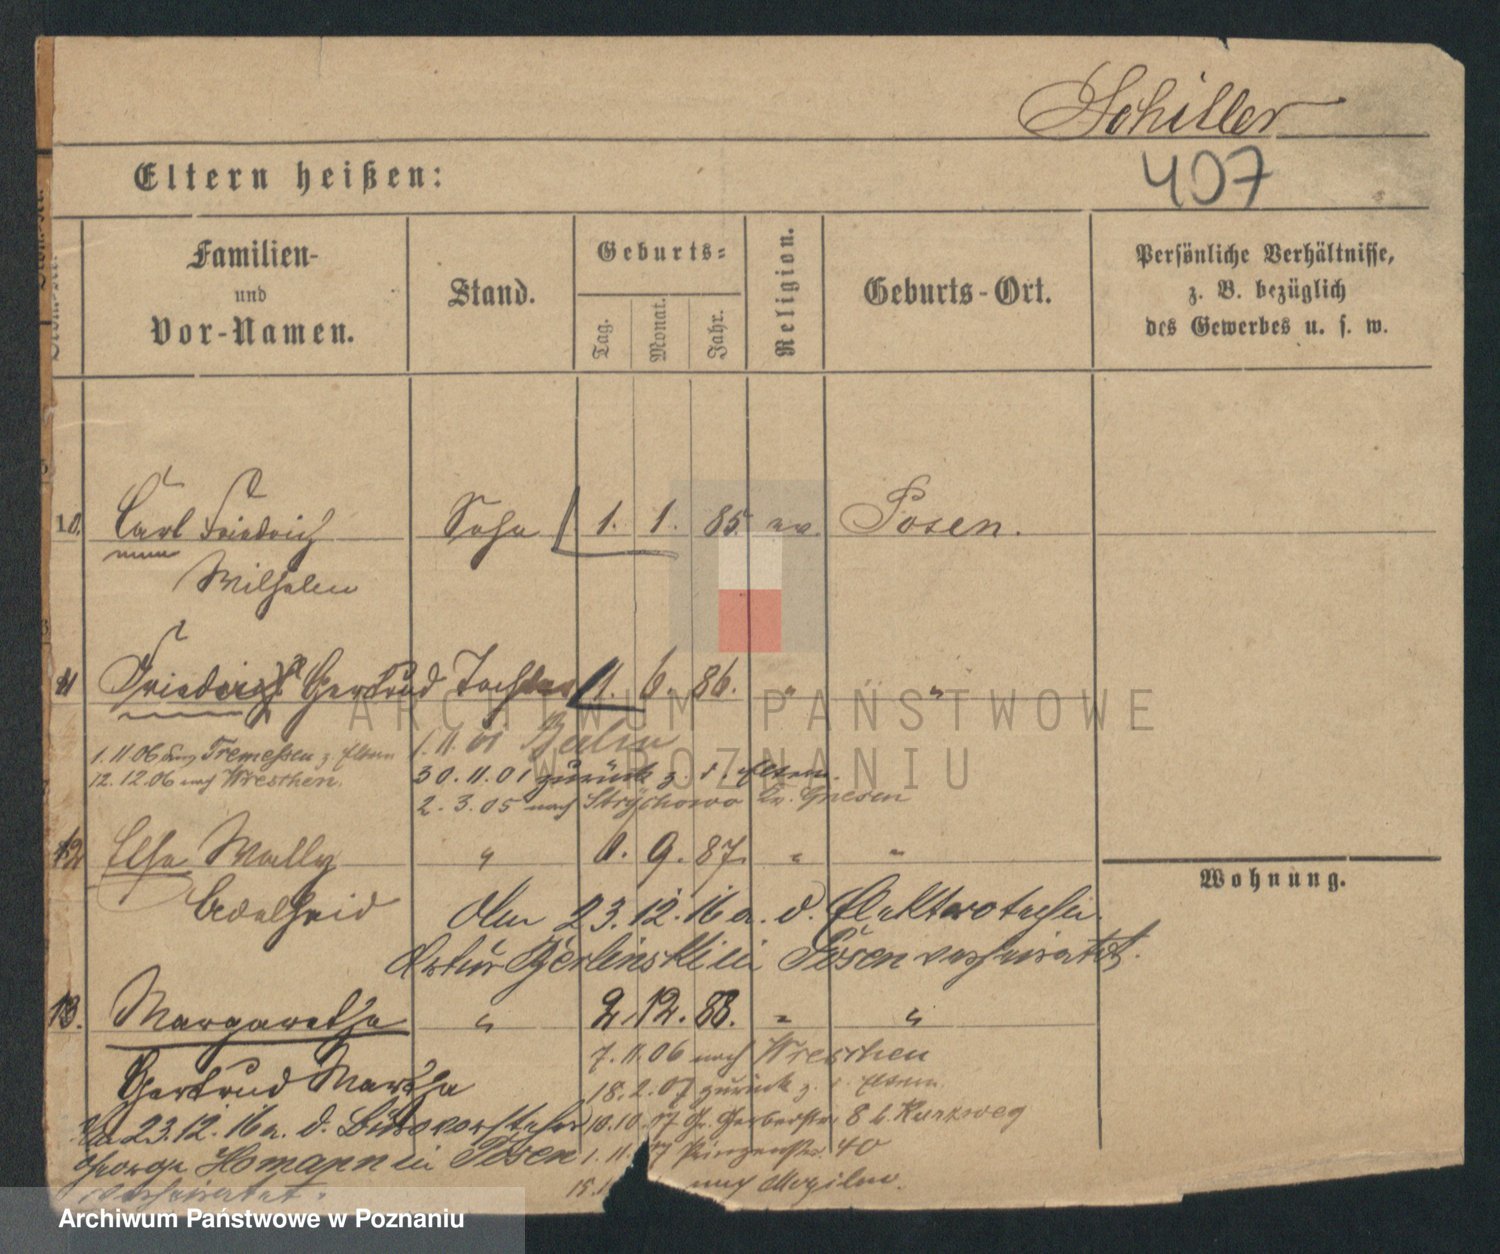 Schiller
407
Eltern heißen:
Familien-
und
Vor-Namen.
Stand.
Geburts-
Tag.
Monat.
Jahr.
Religion.
Geburts-Ort.
Persönliche Verhältnisse,
z. B. bezüglich
des Gewerbes u. s. w.
10. Carl Friedrich Sohn 1. 1. 85. ev. Posen.
Wilhelm
11 Gertrud Tochter 1. 6. 86. " "
ARCHIWUM PAŃSTWOWE
W POZNANIU
1.11.01 Berlin
1.11.06 Tremessen z. Eltern
30.11.01 zurück z. d. Eltern.
12.12.06 nach Wreschen.
2.3.05 nach Strychowo Kr. Gnesen
12 Else Wally " 9. 87. " "
Wohnung.
Adelheid
Am 23.12.16 a. d. Elektrotechn.
Artur Berlinski in Posen verheiratet.
13. Margarethe " 2. 12. 88. " "
7.11.06 nach Wreschen
Gertrud Martha
18.2.07 zurück z. d. Eltern.
Am 23.12.16 a. d. Bürovorsteher
10.10.07 Gr. Gerberstr. 8 b. Kurzweg
George Homann in Posen
1.11.07 Prinzenstr. 40
verheiratet.
15.1 nach Mogilno.
Archiwum Państwowe w Poznaniu